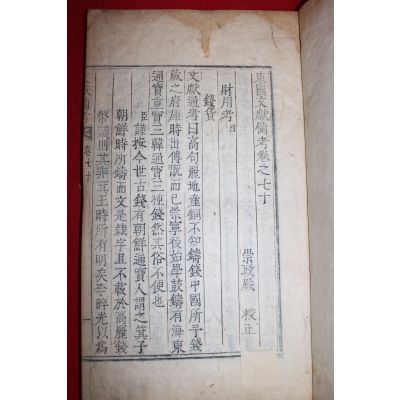 東國文獻備考卷之七十
崇政殿 校正
財用考
錢貨
文獻通考曰高句麗地産銅不知鑄錢中國所予錢
藏之府庫時出傳翫而已崇寧後始學鼓鑄有海東
通寶重寶三韓通寶三種錢然其俗不便也
臣謹按今世古錢有朝鮮通寶人謂之箕子
朝鮮時所鑄而文是隷字且不載於高麗錢
幣議則其非箕王時所有明矣李睟光以爲
文獻備考 卷七十 一